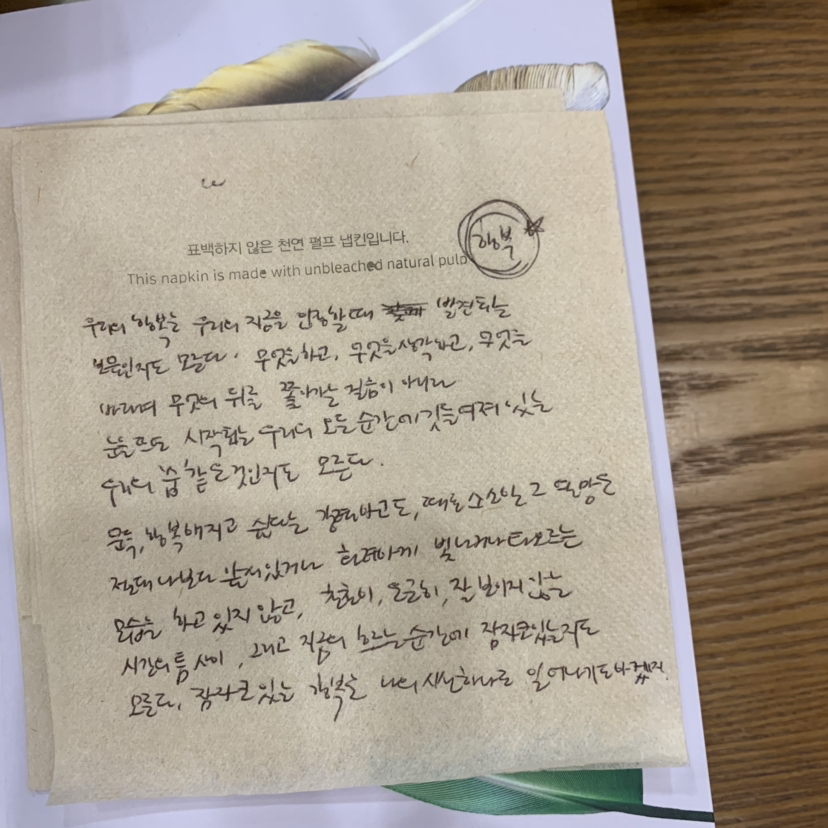 표백하지 않은 천연 펄프 냅킨입니다.
This napkin is made with unbleached natural pulp
행복
우리의 행복는 우리의 지금을 인정할 때 발견되는
보물인지도 모른다. 무엇을 하고, 무엇을 생각하고, 무엇을
바라며 무엇의 뒤를 쫓아가는 걸음이 아니라
눈을 뜨고 시작되는 우리의 모든 순간에 깃들여져 있는
우리의 숨 같은 것인지도 모른다.
문득, 행복해지고 싶다는 강력하고도, 때로 소소한 그 열망은
절대 나보다 앞서 있거나 화려하게 빛나거나 타오르는
모습을 하고 있지 않고, 천천히, 은근히, 잘 보이지 않는
시간의 틈 사이, 그리고 지금의 흐르는 순간에 잠자코 있는지도
모른다, 잠자코 있는 행복은 나의 시선 하나로 일어나기도 하겠지.